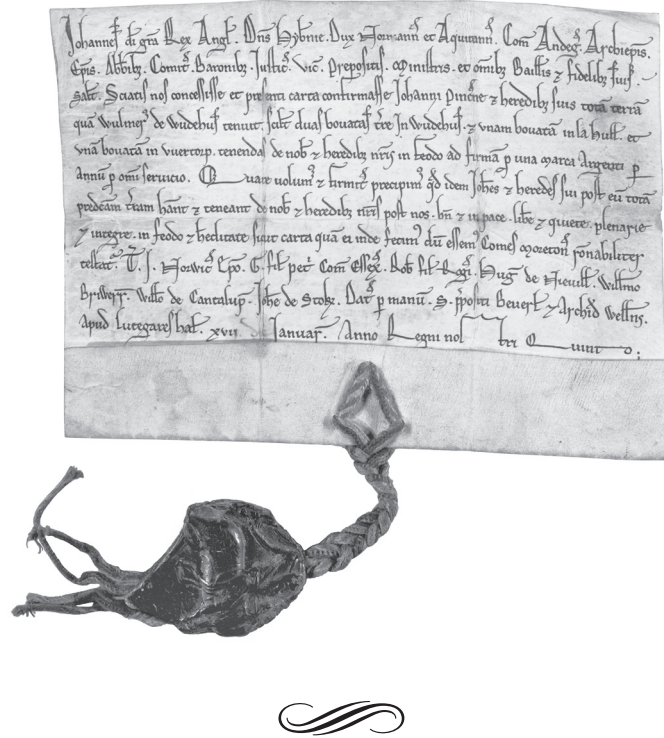 Johannes di gra Rex Angl. Dns Hybnie. Dux Normann et Aquitann. Com Andeg. Archiepis.
Epis. Abbibz. Comit. Baronibz. Justic. Vic. Prepositis. Ministris. et omibz Baillis z fidelibz suis.
salt. Sciatis nos concessisse et presenti carta confirmasse Johanni pincne z heredibz suis totā terrā
quā wulmg de wudehus tenuit. scilt duas bouatas tre In wudehus. z unam bouatā in la hull. et
unā bouatā in vuertorp. tenendas de nob z heredibz nris in feodo ad firmā p una marca Argenti p
annū p omi seruicio. Quare volum z firmit precipim qd idem Johes z heredes sui post eū totā
predcām tram hānt z teneant de nob z heredibz nris post nos. bn z in pace. libe z quiete. plenarie
z integre. in feodo z heditate sicut carta quā ei inde fecim dū essem Comes moreton ronabiliter
testat. T. J. Norwic Epo. G. fil pet Com Essex. Rob fil Rogi. Hug de Neuill. Willmo
Briwerr. Willo de Cantalup. Johe de Stok. Dat p manū. S. ppositi Beuerl z Archid wellns.
apud lutegareshal. xvii Januar. Anno Regni nostri Quinto.